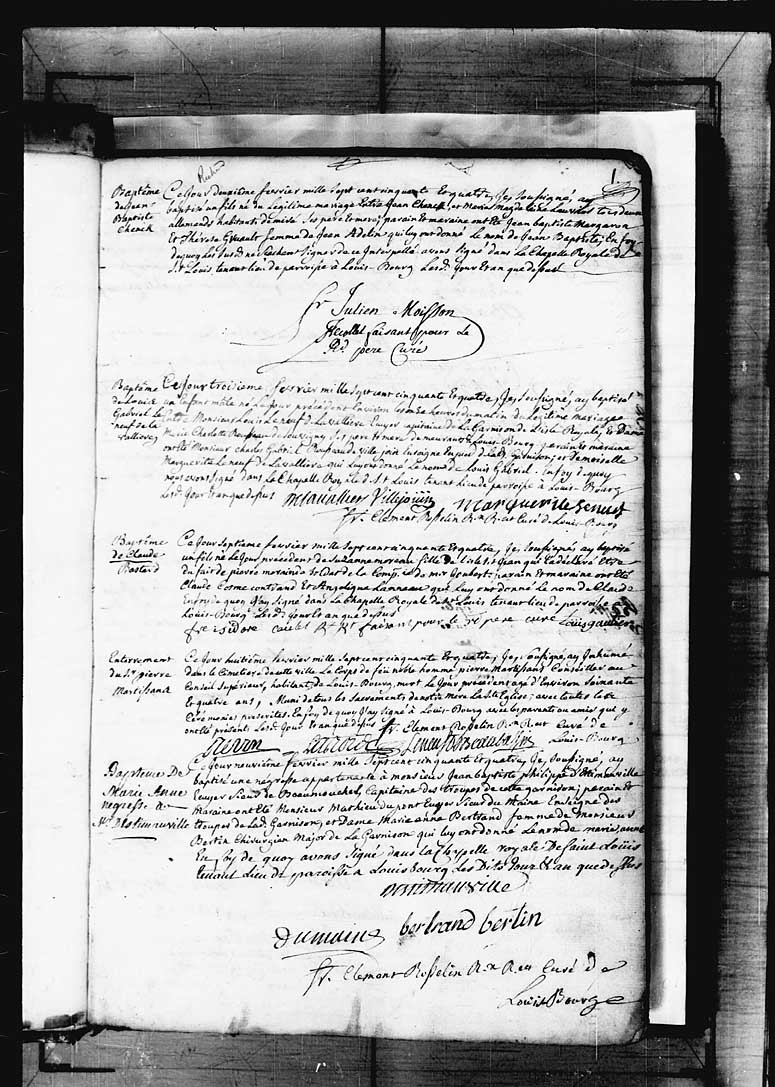 1
Baptême
de Jean
Baptiste
Chenck
Ce Jour deuxième fevrier mille sept cent cinquante Et quatre, Je, Soussigné, ay
baptisé un fils né du Legitime mariage Entre Jean Chenck, et Marie Magdelaine
allemands habitants de mirée Ses pere et mere; parain et maraine ont Eté Jean baptiste Margaron
Et Therese Gruault femme de Jean Adelin qui luy ont donné le nom de Jean Baptiste; En foy
de quoy Les Susd. ne Sachant Signer de ce Interpellé avons Signé dans La Chapelle Royale de
St Louis, tenant lieu de parroisse à Louis-Bourg Les d. Jour Et an que dessus
fr Julien Moisson
Recollet faisant pour Le
Rd. pere Curé
Baptême
de Louis
Gabriel Le
neuf de la
Valliere
Ce Jour troisieme fevrier mille Sept cent cinquante Et quatre, Je, Soussigné, ay baptisé
un Enfant mâle né Le Jour précédent Environ Les onze heures du matin du Legitime mariage
Entre Monsieur Louis Le neuf de La Valliere Ecuyer capitaine de La Garnison de L'isle Royale, Et Dame
Marie Charlotte Rousseau de Souvigny Ses pere et mere demeurants à Louis-Bourg parain Et maraine
ont Eté Monsieur Charles Gabriel Rousseau de Villejoin Enseigne en pied de La d. Garnison, et Demoiselle
Marguerite Le neuf de La Valliere qui Luy ont donné Le nom de Louis Gabriel. En foy de quoy
nous avons Signé dans La Chapelle Royale de St Louis tenant Lieu de parroisse à Louis-Bourg
Les d. Jour Et an que dessus
Lavallier Villejoüin Marguerite Leneuf
fr. Clement Rosselin Rn. R.et Curé de Louis-Bourg
Baptême
de Claude
Bastard
Ce Jour Septieme fevrier mille Sept cent cinquante Et quatre, Je, Soussigné, ay baptisé
un fils né Le Jour précédent de Suzanne moreau fille de L'isle St Jean qui L'a déclaré Etre
du fait de pierre Soldat de la Comp. de mr parain Et maraine ont Eté
Claude Cosme Et Angelique Lanneau qui Luy ont donné Le nom de Claude
En foy de quoy J'ay Signé dans La Chapelle Royale de St Louis tenant Lieu de parroisse
Louis-Bourg Les d. Jour Et an que dessus
fr isidore caulet R R.t faisant pour le R pere curé Louis gautier
Enterrement
du Sr. pierre
Martissand
Ce Jour huitieme fevrier mille Sept cent cinquante Et quatre, Je, Soussigné, ay Inhumé
dans le Cimetiere de cette ville Le Corps de feu noble homme pierre Martissand Conseiller au
Conseil Supérieur, habitant de Louis-Bourg, mort Le Jour précédent agé d'Environ Soixante
Et quatre ans, Muni de tous les Sacrements de notre Mere La Ste Eglise; avec toutes Les
Cérémonies prescrites. En foy de quoy J'ay Signé à Louis-Bourg avec les parents ou amis qui y
ont Eté présents Les d. Jour Et an que dessus fr. Clement Rosselin Rn. R.et Curé de
Louis-Bourg
Baptême De
Marie Anne
negresse a
Mr. Destimauville
Ce Jour neuvieme fevrier mille Sept cent cinquante Et quatre Je, Soussigné, ay
baptisé une négresse appartenante à monsieur Jean baptiste philippe d'Estimauville
Ecuyer Sieur de Beaumouchel, Capitaine des troupes de cette garnison; parain Et
Maraine ont Eté Monsieur Mathieu du pont Ecuyer Sieur du Maine Enseigne des
troupes de La d. Garnison, et Dame Marie anne Bertrand famme de Monsieur
Bertin Chirurgien Major de La Garnison qui luy ont donné Le nom de marie anne
En foy de quoy avons Signé dans La Chappelle royale De Saint Loüis
tenant Lieu de paroisse a Louisbourg Les Dits Jour Et an que dessus
Destimauville
Dumaine bertrand bertin
fr. Clement Rosselin Rn R.et Curé de
Louis Bourg